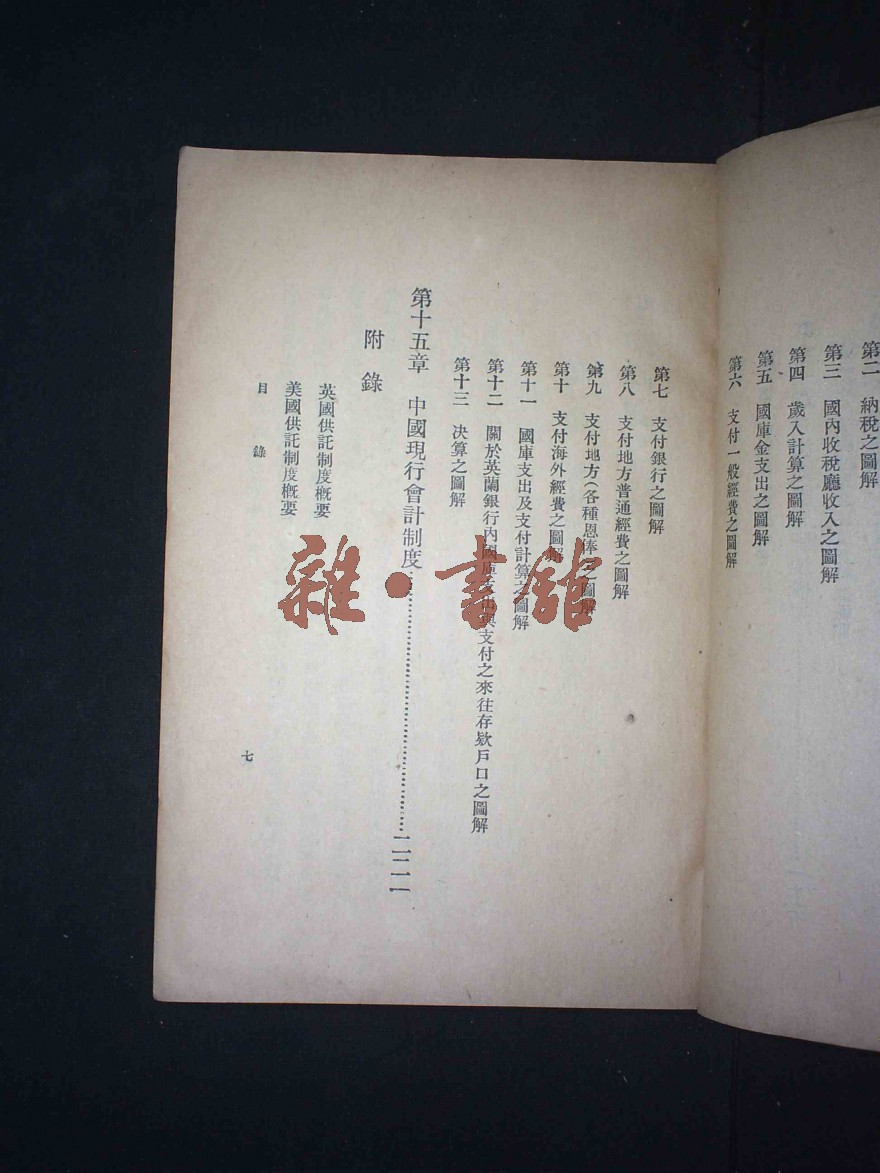 第二　納稅之圖解
第三　國內收稅廳收入之圖解
第四　歲入計算之圖解
第五　國庫金支出之圖解
第六　支付一般經費之圖解
第七　支付銀行之圖解
第八　支付地方普通經費之圖解
第九　支付地方(各種恩俸)之圖解
第十　支付海外經費之圖解
第十一　國庫支出及支付計算之圖解
第十二　關於英蘭銀行內國庫支出與支付之來往存欵戶口之圖解
第十三　決算之圖解
第十五章　中國現行會計制度……………二二一
附錄
英國供託制度概要
美國供託制度概要
目錄
七
雜·書館